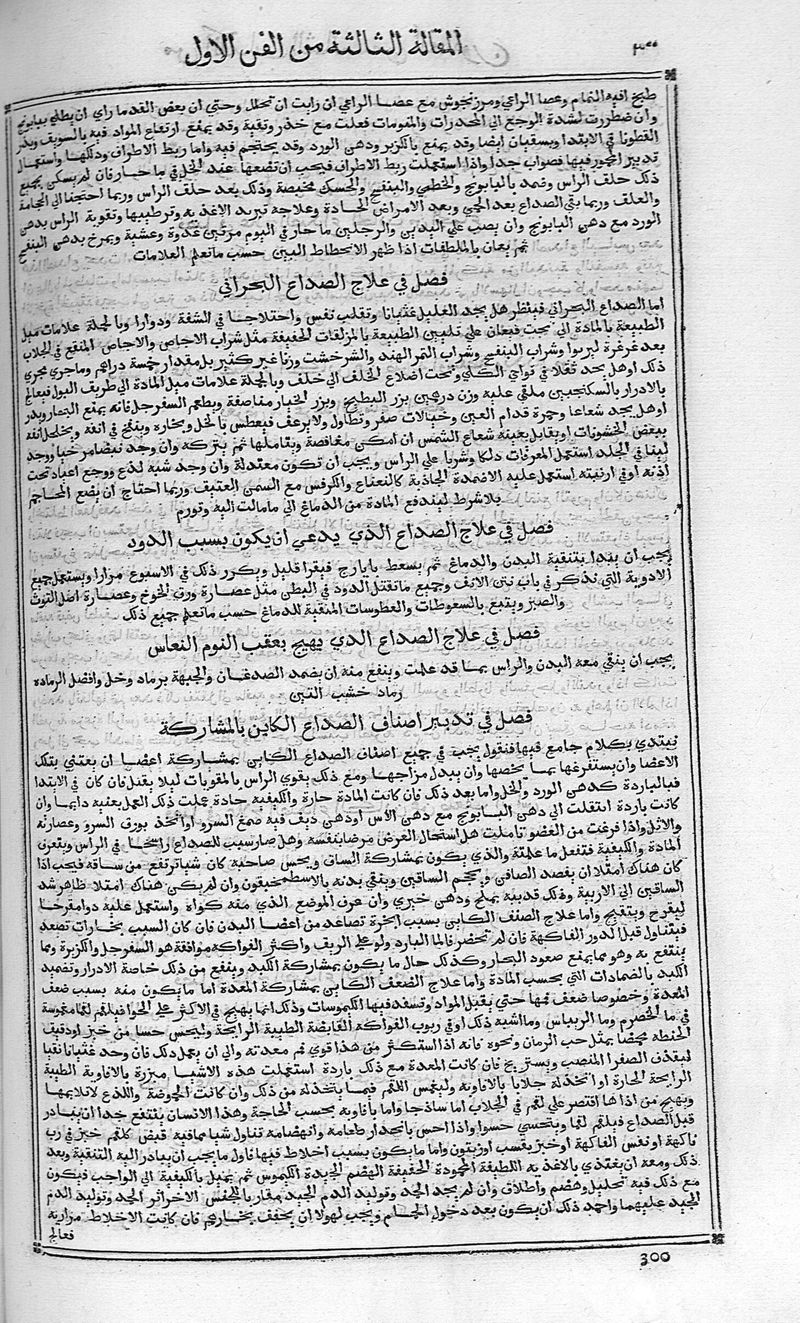 ٣٠٠ المقالة الثالثة من الفن الاول
طبخ افيه النمام وعصا الراعي ومرزنجوش مع عصا الراعي ان رايت ان تحلل وحتي ان بعض القدما راي ان يطلي ببابونج
وان ضطررت لشدة الوجع الي المخدرات والمنومات فعلت مع خذر وتقية وقد يمنع ارتفاع المواد فيه بالسويق وبذر
القطونا في الابتدا ويسقيان ايضا وقد يمنع بالكزبر ودهن الورد وقد يحتجم فيه واما ربط الاطراف ودلكها واستعمال
تدبير المحجور فيها فصواب جدا واذا استعملت ربط الاطراف فيجب ان تضعها عند الحل في ما حار فان لم يسكن بجميع
ذلك حلق الراس وضمد بالبابونج والخطمي والبنفسج والحسك مخيصة وذلك بعد حلق الراس وربما احتجنا الي الحجامة
والعلق وربما بقي الصداع بعد الحمي وبعد الامراض الحادة وعلاجه تبريد الاغذية وترطيبها وتقوية الراس بدهن
الورد مع دهن البابونج وان يصب علي اليدين والرجلين ما حار في اليوم مرتين غدوة وعشية ويمرخ بدهن البنفسج
ثم يعان بالملطفات اذا ظهر الانحطاط البين حسب ما تعلم العلامات
فصل في علاج الصداع البحراني
اما الصداع البحراني فينظر هل يجد العليل غثيانا وتقلب نفس واختلاجا في الشفة ودوارا وبالجملة علامات ميل
الطبيعة بالمادة الي تحت فيعان علي تليين الطبيعة بالمزلقات الخفيفة مثل شراب الاجاص والاجاص المنقع في الجلاب
بعد غرغرة ليربوا وشراب البنفسج وشراب التمر الهند والشرخشت وزنا غير كثير بل مقدار خمسة دراهم وما جري مجري
ذلك او هل يجد ثقلا في نواحي الكلي وتحت اضلاع الخلف الي خلف وبالجملة علامات ميل المادة الي طريف البول فيعالج
بالادرار بالسكنجبين ملقي عليه وزن درهمين بزر البطيخ وبزر الخيار مناصفة ويطعم السفرجل فانه يمنع البخار ويدر
او هل يجد شعاعا وحمرة قدام العين وخيالات صفر وتطاول ولا يرعف فيعطس بالخل وبخاره وينفخ في انفه ويخلخل انفه
ببعض الخشونات او يقابل بعينه شعاع الشمس ان امكن مغافصة ويتاملها ثم يتركه وان وجد نبضا مرخيا ووجد
لينا في الجلد استعمل المعرقات دلكا وشربا علي الراس ويجب ان تكون معتدلة وان وجد شبه لذع ووجع اعياد تحت
اذنه او في ارنبته استعمل عليه الاضمدة الجاذبة كالنعناع والكرفس مع السمن العتيف وربما احتاج ان يضع المحاجم
بلا شرط ليندفع المادة من الدماغ الي ما مالت اليه وتورم
فصل في علاج الصداع الذي يدعي ان يكون بسبب الدود
يجب ان يبدا بتنقية البدن والدماغ ثم يسعط بايارج فيقرا قليل ويكرر ذلك في الاسبوع مرارا ويستعمل جميع
الادوية التي نذكر في باب نتن الانف وجميع ما نقتل الدود في البطن مثل عصارة ورق الخوخ وعصارة اصل التوت
والصبر ويتبع بالسعوطات والعطوسات المنقية للدماغ حسب ما تعلم جميع ذلك
فصل في علاج الصداع الذي يهيج بعقب النوم النعاس
يجب ان ينقي معه البدن والراس بما قد علمت وينفع منه ان يضمد الصدغان والجبهة برماد وخل وافضل الرماده
رماد خشب التين
فصل في تدبير اصناف الصداع الكاين بالمشاركة
نبتدي بكلام جامع فيها فنقول يجب في جميع اصناف الصداع الكاين بمشاركة اعضا ان يعتني بتلك
الاعضا وان يستفرغها بما يخصها وان يبدل مزاجها ومع ذلك يقوي الراس بالمقويات ليلا يقبل فان كان في الابتدا
فبالباردة كدهن الورد والخل واما بعد ذلك فان كانت المادة حارة والكيفية حادة عملت ذلك العمل بعينه دايما وان
كانت باردة انتقلت الي دهن البابونج مع دهن الاس او دهن ديف فيه صمغ السرو او اتخذ بورق السرو وعصارته
والاثل واذا فرغت من العضو تاملت هل استحال العرض مرضا بنفسه وهل صار سبب للصداع راسخا في الراس ويتعرف
المادة والكيفية فتفعل ما علمته والذي يكون بمشاركة الساق ويحس صاحبه كان شيا ترتفع من ساقه فيجب اذا
كان هناك امتلا ان يفصد الصافن ويحجم الساقين وينقي بدنه بالاسطمخيقون وان لم يكن هناك امتلا ظاهر شد
الساقين الي الاربية وذلك قدميه بملح ودهن خيري وان عرف الموضع الذي منه كواه واستعمل عليه دوا مقرحا
ليقرح وينفتح واما علاج الصنف الكاين بسبب ابخرة تصاعد من اعضا البدن فان كان السبب بخارات تصعد
فيتناول قبل الدور الفاكهة فان لم تحضر فالما البارد ولو علي الريف واكثر الفواكه موافقة هو السفرجل والكزبرة وما
ينتفع به وهو مما يمنع صعود البخار وكذلك حال ما يكون بمشاركة الكليد وينفع من ذلك خاصة الادرار وتضميد
الكليد بالضمادات التي بحسب المادة واما علاج الضعف الكاين بمشاركة المعدة اما ما يكون منه بسبب ضعف
المعدة وخصوصا ضعف فمها حتي يقبل المواد وتفسد فيها الكيموسات وذلك انما يهيج في الاكثر علي الخوا فيلقم لقما مغموسة
في ما الحصرم وما الريباس وما اشبه ذلك او في ربوب الفواكه القابضة الطيبة الرايحة وليحس حسا من خبز او دقيف
الحنطة محمضا بمثل حب الرمان ونحوه فانه اذا استكثر من هذا قوي فم معدته والي ان يعمل ذلك فان وجد غثيانا نقيا
ليقذف الصفرا المنصب ويستريح فان كانت المعدة مع ذلك باردة استعملت هذه الاشيا مبزرة بالافاوية الطيبة
الرايحة الحارة او اتخذ له جلابا بالافاويه وليغمس اللقم فيما يتخذ له من ذلك وان كانت الحموضة واللذع لا تلايمها
ويهيج من اذاها اقتصر علي لقم في الجلاب اما ساذجا واما بافاويه بحسب الحاجة وهذا الانسان ينتفع جدا ان يبادر
قبل الصداع فيلقم لقما ويتحسي حسوا واذا احس بانحدار طعامه وانهضامه تناول شيا مما فيه قبض كلقم خبز في رب
فاكهة او نفس الفاكهة او خبز بقسب او زيتون واما ما يكون بسبب اخلاط فيها فاول ما يجب ان يبادر اليه التنقية وبعد
ذلك ومعه ان يغتذي بالاغذية اللطيفة المحمودة الخفيفة الهضم الجيدة الكيموس ثم يميل بالكيفية الي الواجب فيكون
مع ذلك فيه تحليل وهضم واطلاق وان لم يجد الجد وتوليد الدم الجيد
الجيد عليهما واحمد ذلك ان يكون بعد دخول الحمام ويجب لهولا ان يخفف بخارهم فان كانت الاخلاط مرارية
فعالج
300